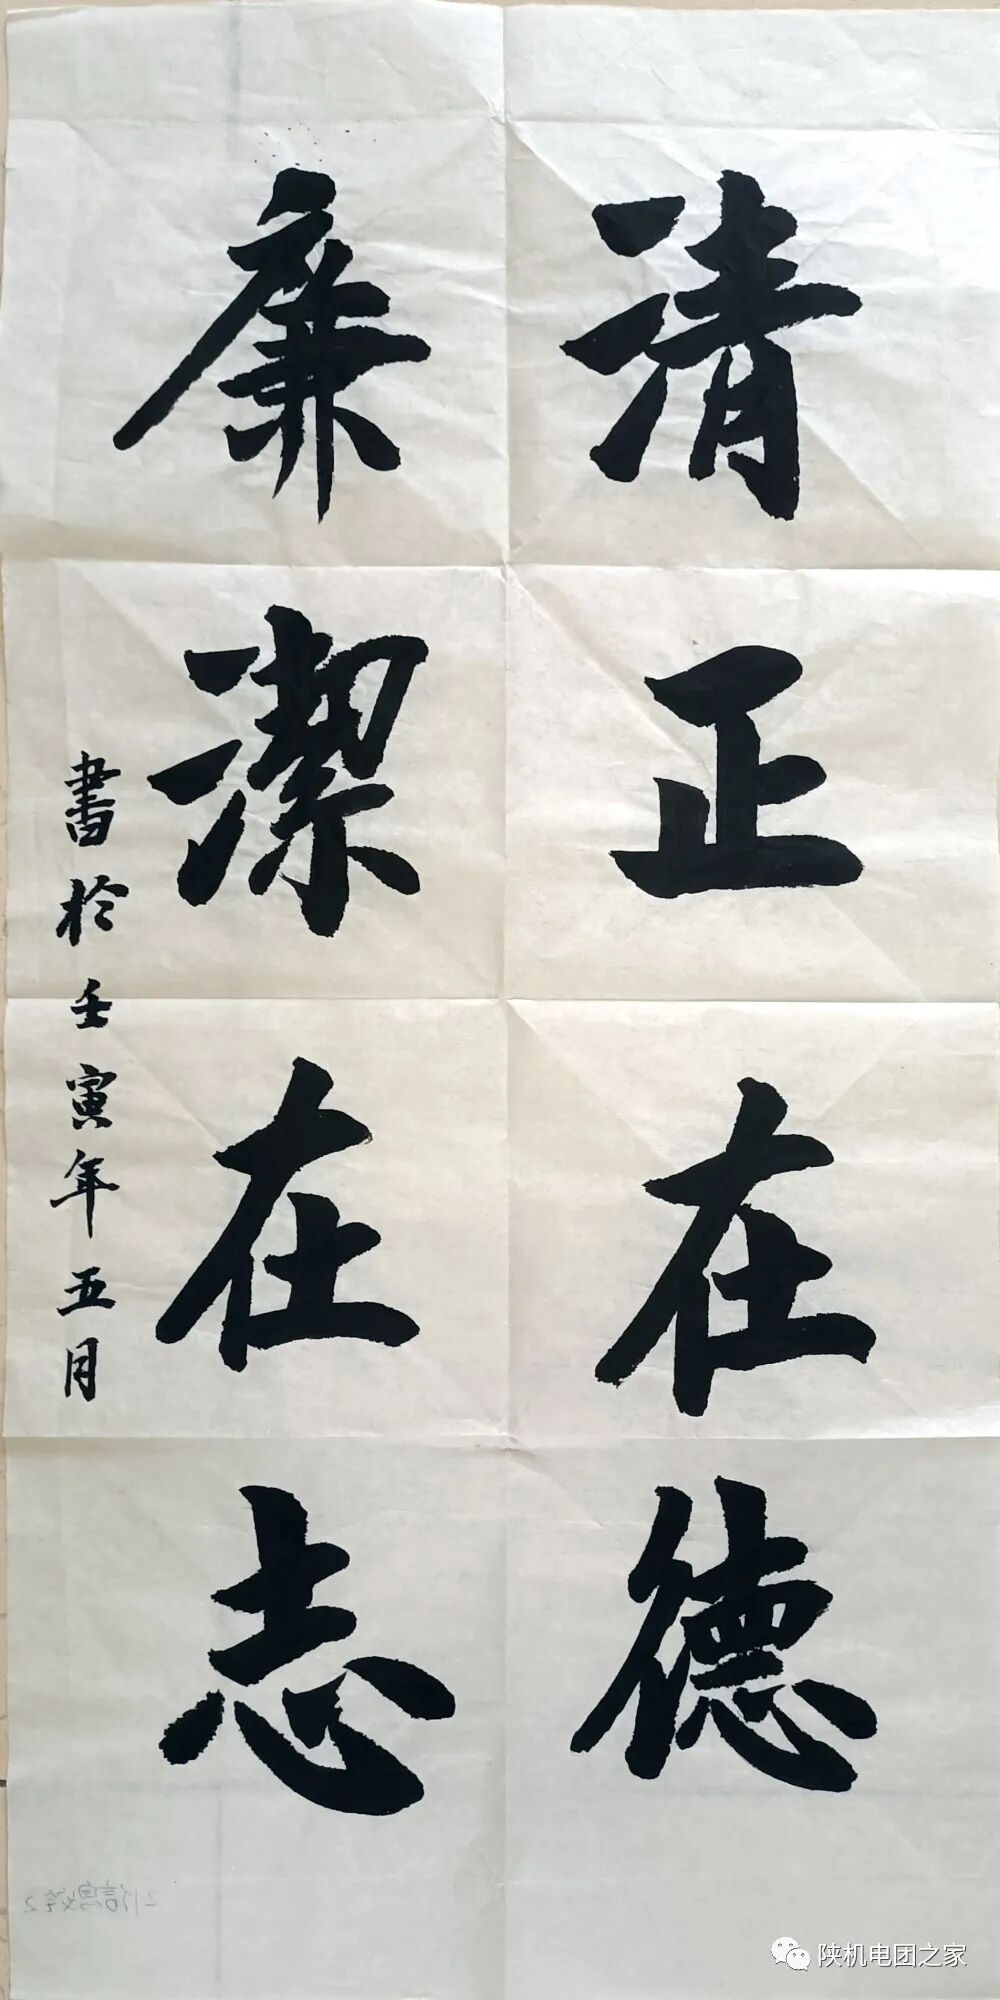 清正在德
廉潔在志
書於壬寅年五月
陕机电团之家